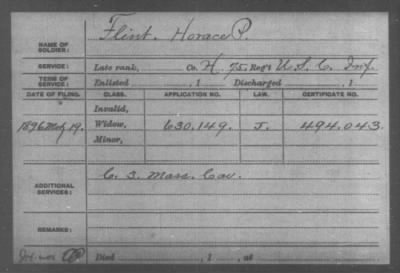 Flint. Horace P.
NAME OF SOLDIER:
SERVICE: Late rank, Co. H, 75 Reg't U. S. C. Inf.
TERM OF SERVICE: Enlisted , 1 Discharged , 1
DATE OF FILING. CLASS. APPLICATION NO. LAW. CERTIFICATE NO.
Invalid,
1896 May 19. Widow, 630.149. J. 494.043.
Minor,
C. 3. Mass. Cav.
ADDITIONAL SERVICES:
REMARKS:
Died , 1 , at